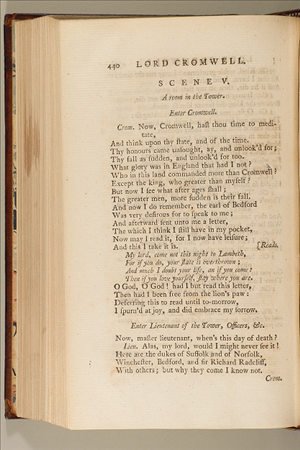 440 LORD CROMWELL.
SCENE V.
A room in the Tower.
Enter Cromwell.
Crom. Now, Cromwell, haſt thou time to medi-
tate,
And think upon thy ſtate, and of the time.
Thy honours came unſought, ay, and unlook'd for;
Thy fall as ſudden, and unlook'd for too.
What glory was in England that had I not?
Who in this land commanded more than Cromwell?
Except the king, who greater than myſelf?
But now I ſee what after ages ſhall;
The greater men, more ſudden is their fall.
And now I do remember, the earl of Bedford
Was very deſirous for to ſpeak to me;
And afterward ſent unto me a letter,
The which I think I ſtill have in my pocket,
Now may I read it, for I now have leiſure;
And this I take it is. [Reads.
My lord, come not this night to Lambeth,
For if you do, your ſtate is overthrown;
And much I doubt your life, an if you come:
Then if you love yourſelf, ſtay where you are.
O God, O God! had I but read this letter,
Then had I been free from the lion's paw:
Deferring this to read until to-morrow,
I ſpurn'd at joy, and did embrace my ſorrow.
Enter Lieutenant of the Tower, Officers, &c.
Now, maſter lieutenant, when's this day of death?
Lieu. Alas, my lord, would I might never ſee it!
Here are the dukes of Suffolk and of Norfolk,
Wincheſter, Bedford, and ſir Richard Radcliff,
With others; but why they come I know not.
Crom.